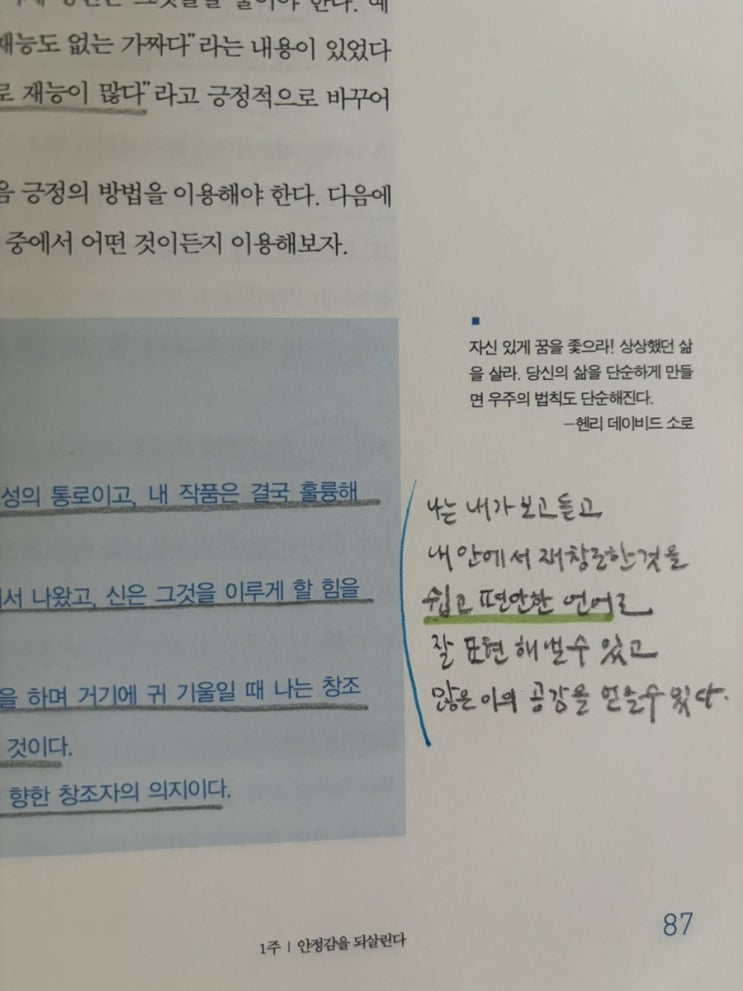 재능도 없는 가짜다”라는 내용이 있었다
로 재능이 많다”라고 긍정적으로 바꾸어
음 긍정의 방법을 이용해야 한다. 다음에
중에서 어떤 것이든지 이용해보자.
성의 통로이고, 내 작품은 결국 훌륭해
서 나왔고, 신은 그것을 이루게 할 힘을
을 하며 거기에 귀 기울일 때 나는 창조
것이다.
향한 창조자의 의지이다.
자신 있게 꿈을 좇으라! 상상했던 삶
을 살라. 당신의 삶을 단순하게 만들
면 우주의 법칙도 단순해진다.
–헨리 데이비드 소로
나는 내가 보고 듣고
내 안에서 재창조한 것을
쉽고 편안한 언어로
잘 표현 해낼 수 있고
많은 이의 공감을 얻을 수 있다.
1주 | 안정감을 되살린다
87